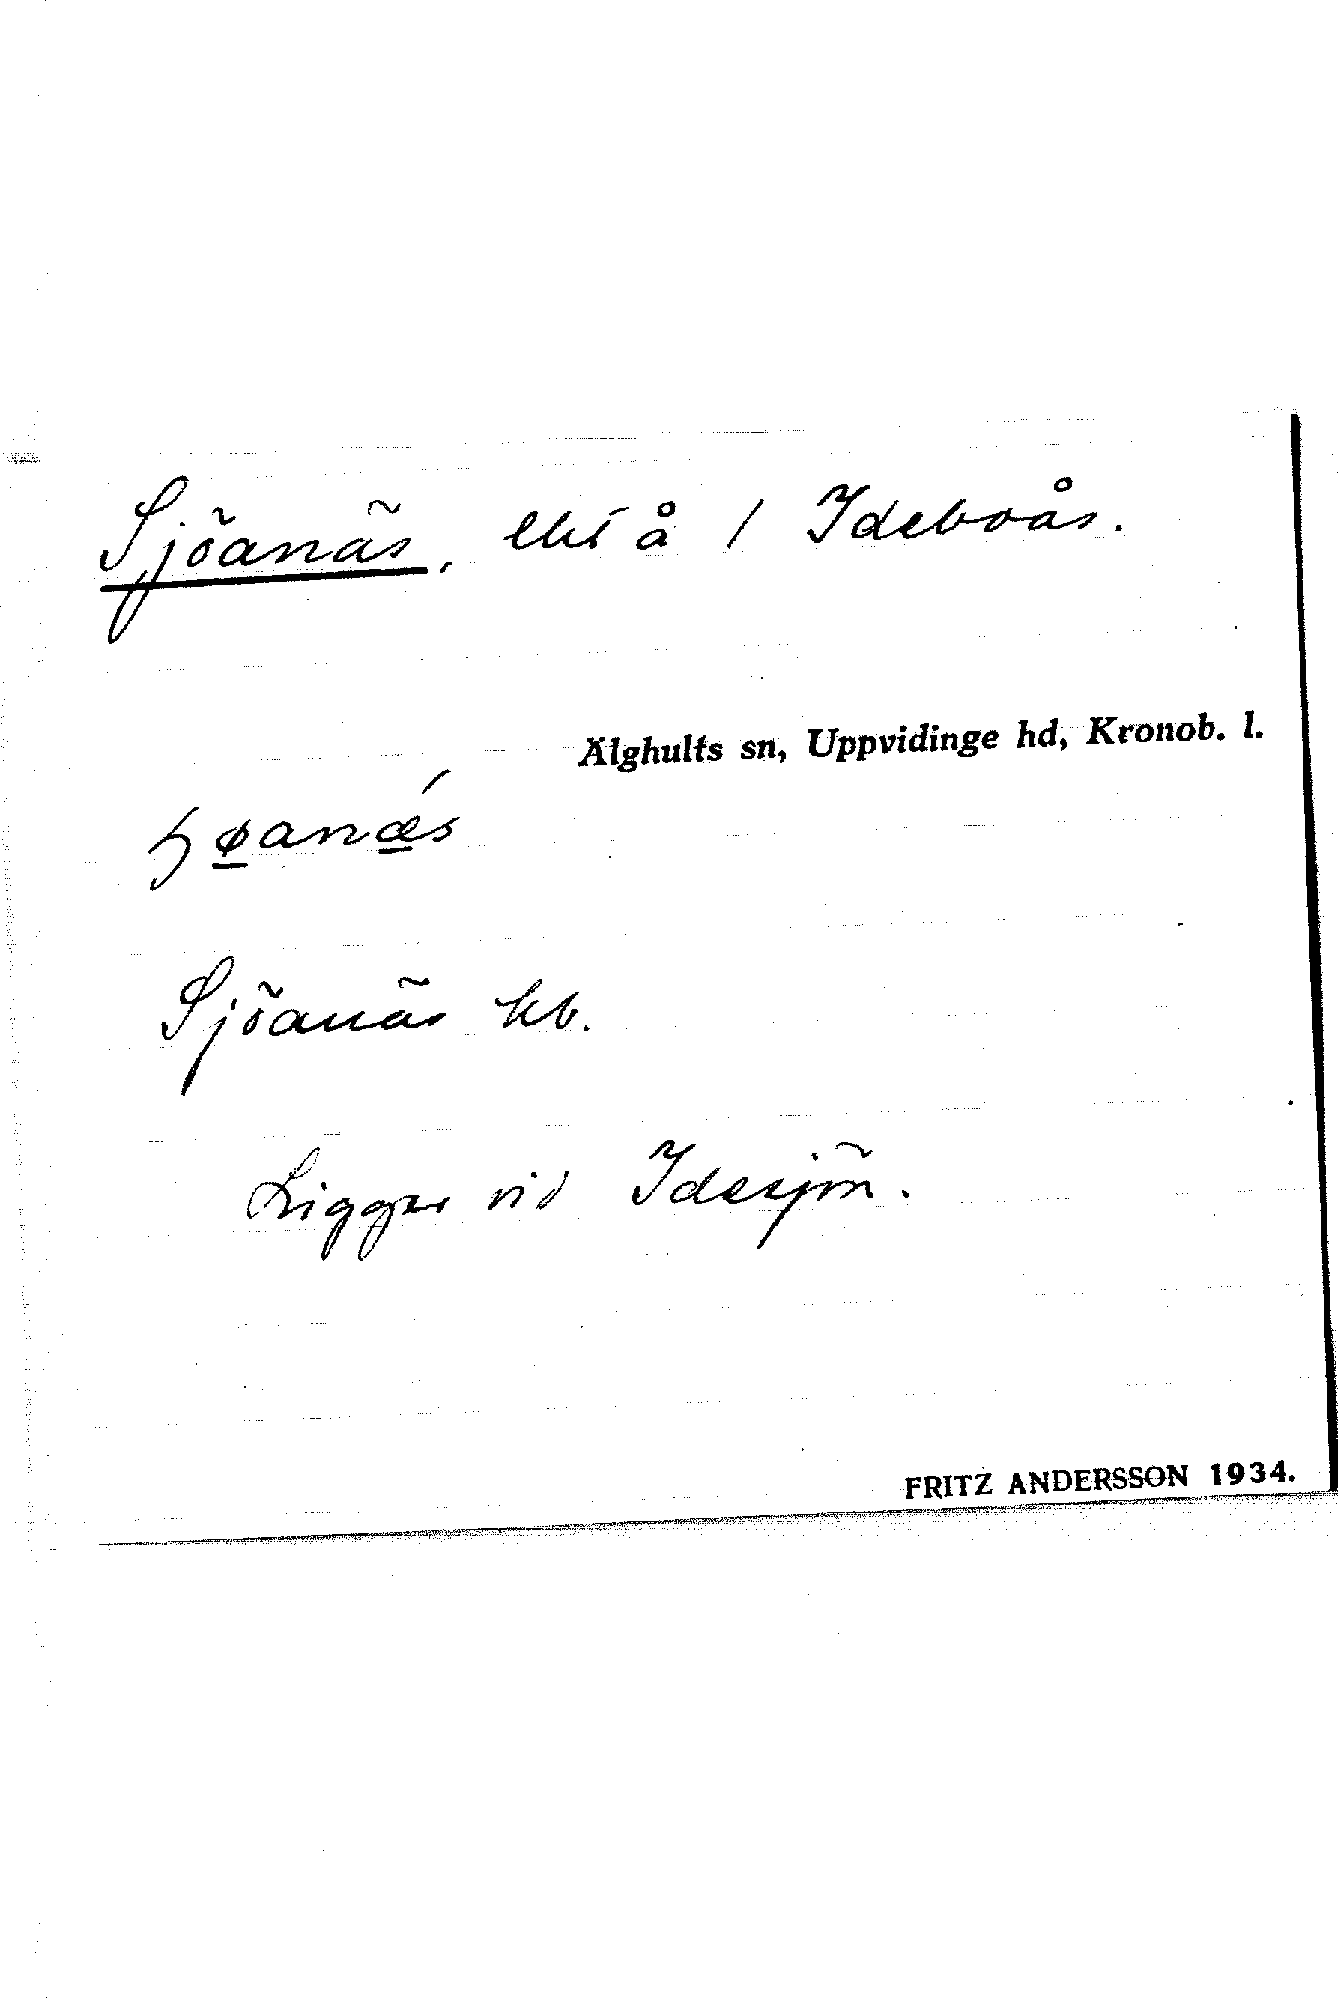 Sjöanäs, lht å 1 Ideboås.
Älghults sn, Uppvidinge hd, Kronob. l.
ɧø̱anǽ̱s
Sjöanäs kb.
Ligger vid Idesjön.
FRITZ ANDERSSON 1934.